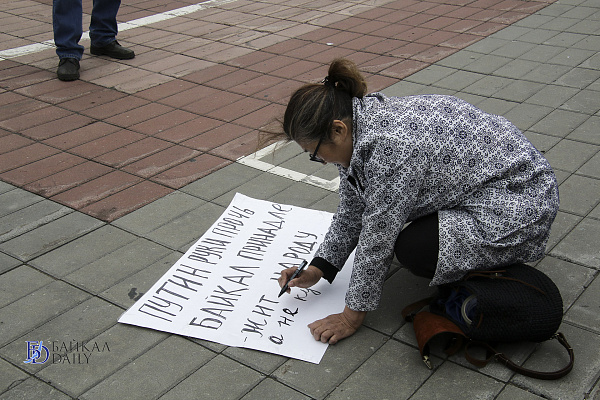 ПУТИН РУКИ ПРОЧЬ
БАЙКАЛ ПРИНАДЛЕ
-ЖИТ НАРОДУ
а не ку
БАЙКАЛ
DAILY